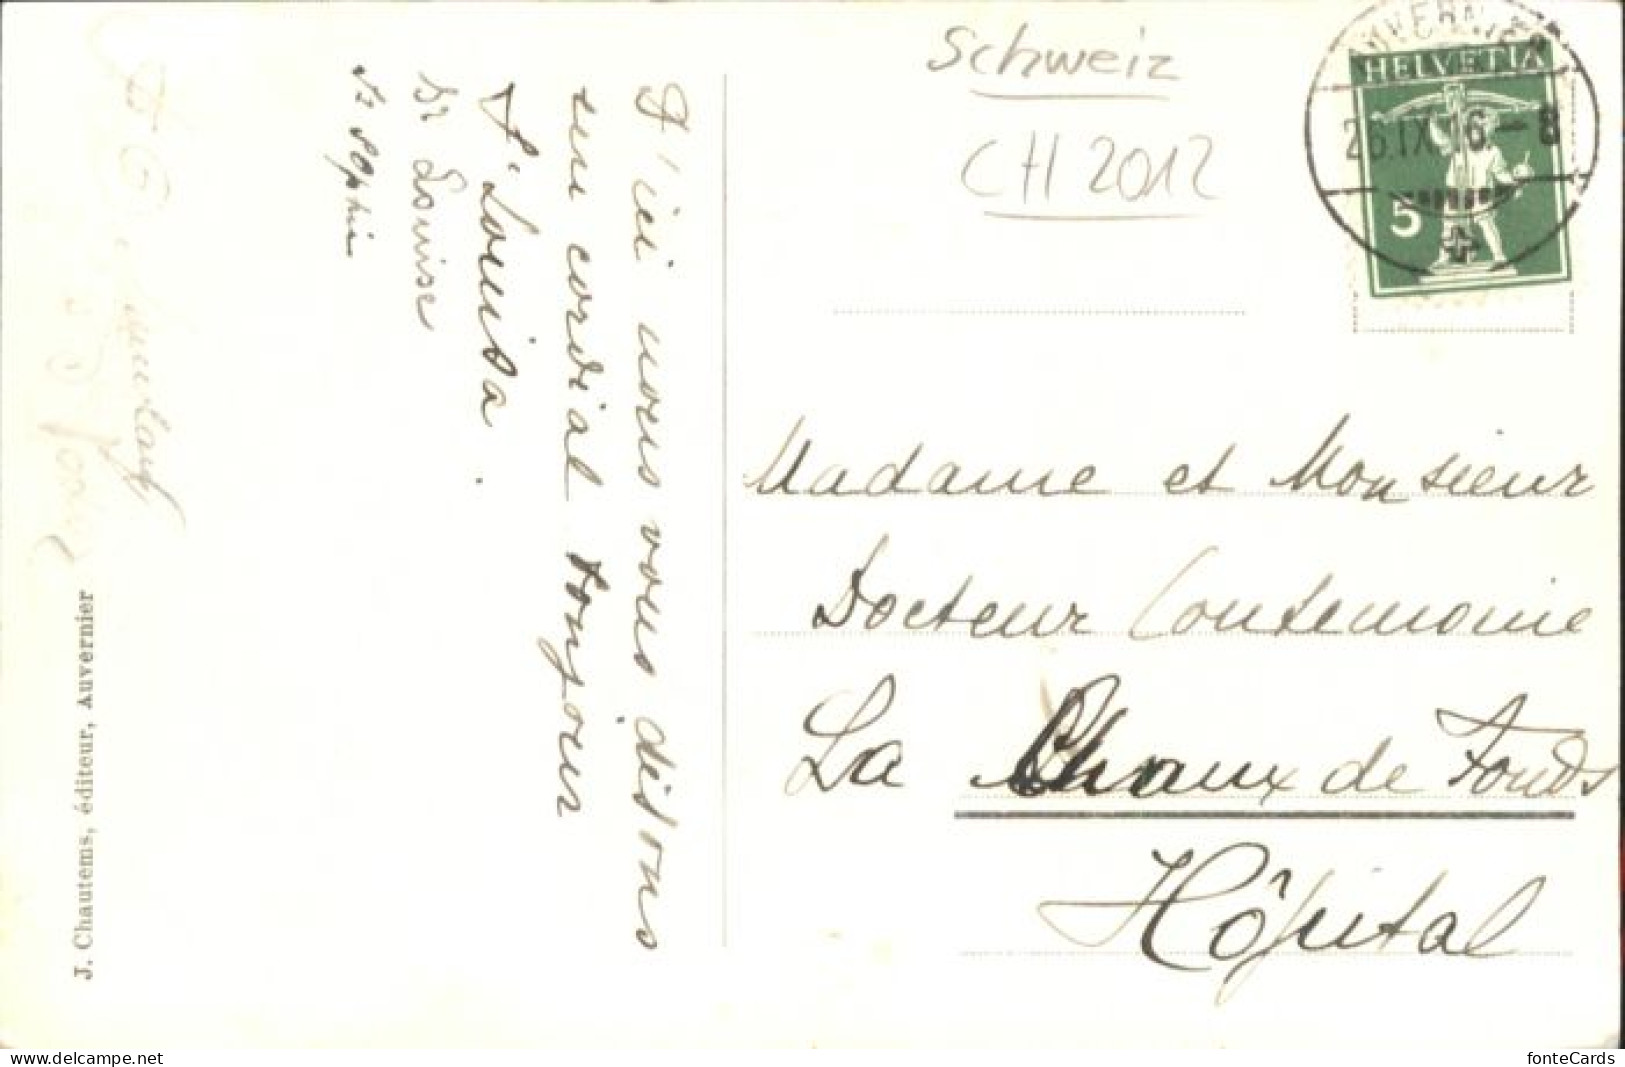 D'ici nous vous disons
un cordial bonjour
S. Louisa.
Sr Louise
Sr Sophie
J. Chautems, éditeur, Auvernier
Schweiz
CH 2012
AUVERNIER
26.IX.16-8
HELVETIA
5
Madame et Monsieur
Docteur
La Chaux de Fonds
Hôpital
www.delcampe.net
fonteCards